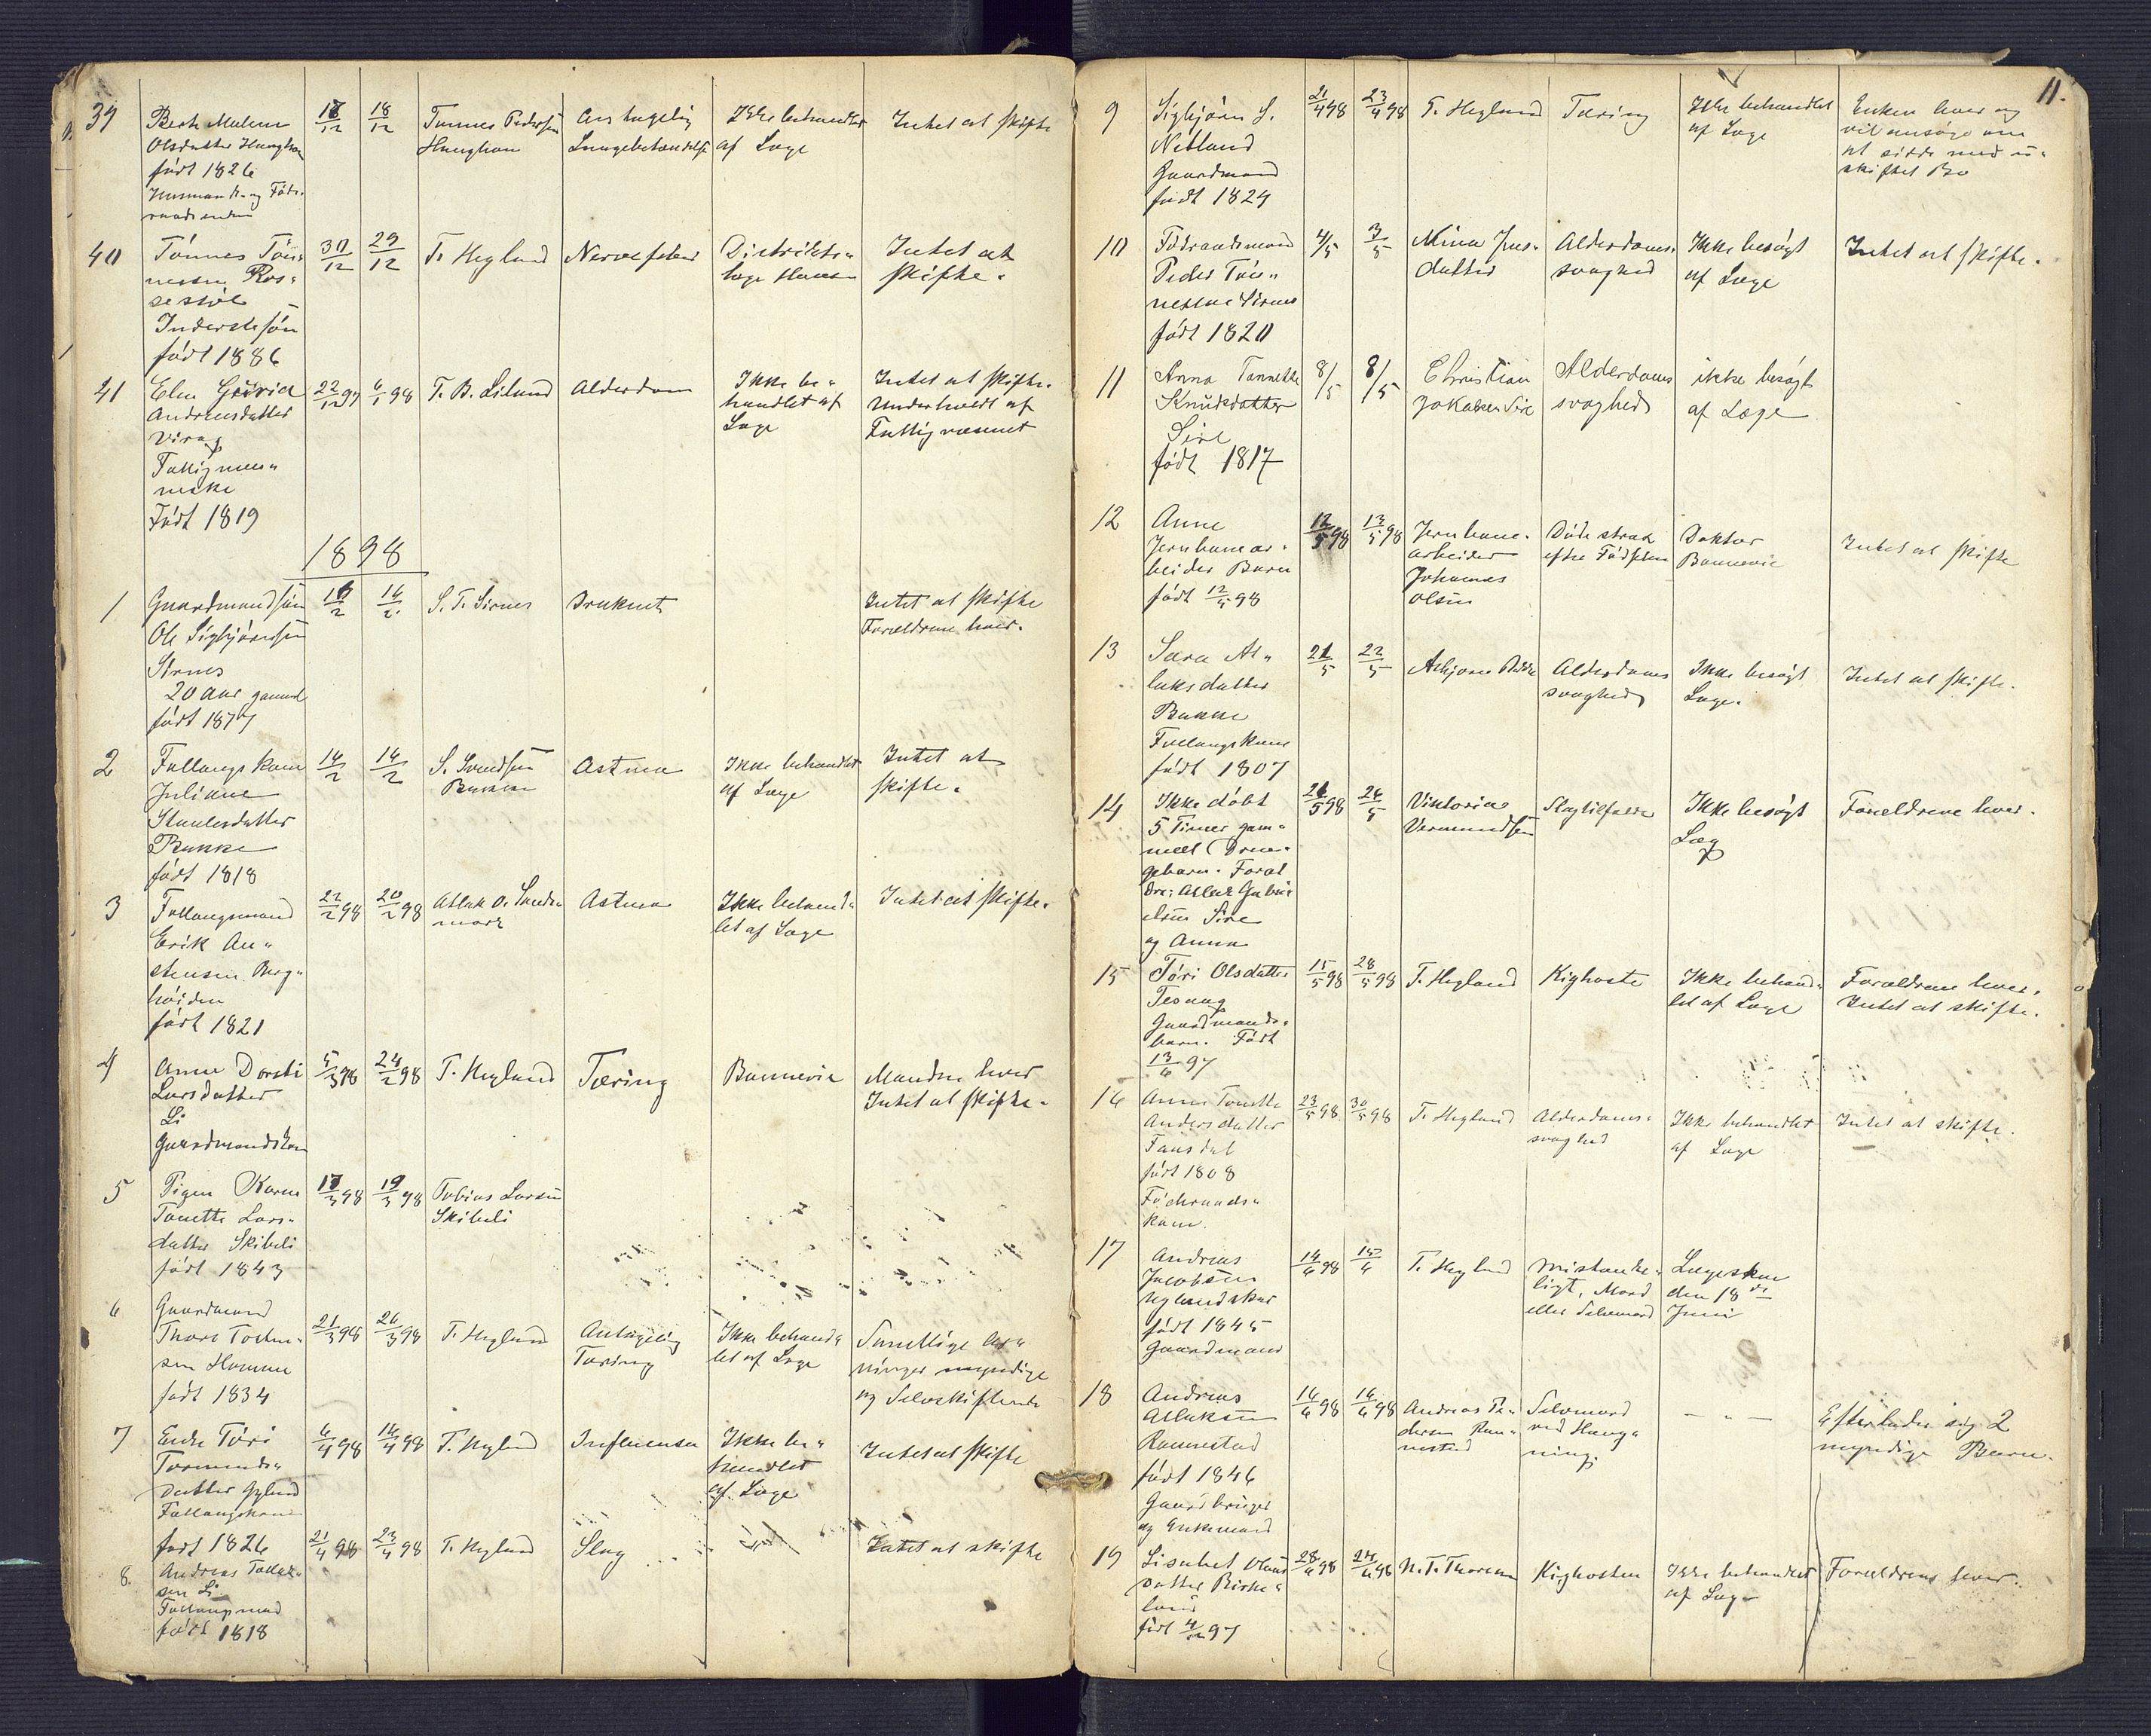 39
Olsdatter
født 1826
18/12
18/12
Tønnes Pedersen
Antagelig
Lungebetændelse
Ikke behandlet
af Læge
Intet at skifte
40
Tønnes Tøn-
nessen Ros-
sestøl
Inderstesøn
født 1886
30/12
29/12
T. Hegland
Nervefeber
Distrikts-
læge Hansen
Intet at
skifte.
41
Andreasdatter
Virag
Fattigmen-
neske
Født 1819
22/12 97
6/1 98
Alderdom
Ikke be-
handlet af
Læge
Intet at skifte.
Underholdt af
Fattigvæsenet
1898
1
Gaardmandssøn
Ole Sigbjørnsen
Sirnes
20 Aar gammel
født 1877
16/2
16/2
S. T. Sirnes
Druknet
Intet at skifte
Forældrene lever.
2
Follaugskone
Juliane
Bakke
født 1818
14/2
14/2
S. Svendsen
Bakke
Astma
Ikke behandlet
af Læge
Intet at
skifte.
3
Follaugsmand
Erik An-
stensen Berg-
høiden
født 1821
22/2 98
20/2 98
Atlak O.
Astma
Ikke behand-
let af Læge
Intet at skifte.
4
Anne Dorthi
Larsdatter
Li
Gaardmandskone
5/3 98
24/2 98
T. Hegland
Tæring
Bonnevie
Manden lever
Intet at skifte.
5
Pigen Karen
Tonette Lars-
datter Skibeli
født 1843
17/3 98
19/3 98
Tobias Larsen
Skibeli
6
Gaardmand
Thore
sen Homme
født 1834
21/3 98
26/3 98
T. Hegland
Antagelig
Tæring
Ikke behand-
let af Læge
Samtlige Ar-
vinger myndige
og Selvskiftende
7
Enke Tori
datter Gyland
Follaugskone
født 1826
6/4 98
14/4 98
T. Hegland
Influensa
Ikke be-
handlet
af Læge
Intet at skifte
8.
Andreas
sen Li
Follaugsmand
født 1818
21/4 98
23/4 98
T. Hegland
Slag
Intet at skifte
11.
9
Sigbjørn S.
Netland
Gaardmand
født 1829
21/4 98
23/4 98
T. Hegland
Tæring
Ikke behandlet
af Læge
Enken lever og
vil ansøge om
at sidde med u-
skiftet Bo
10
Födraadsmand
Peder Tøn-
nessen Sirnes
født 1820
4/5
3/5
datter
Alderdoms-
svaghed
Ikke besøgt
af Læge
Intet at skifte.
11
Anna Tonnette
Knudsdatter
Sire
født 1817
8/5
8/5
Christian
Jakobsen Sire
Alderdoms
svaghed
ikke besøgt
af Læge
12
Anne
Jernbanear-
beider Barn
født 12/5 98
12/5 98
13/5 98
Jernbane-
arbeider
Johannes
Olsen
Døde strax
efter Fødselen
Doktor
Bonnevie
Intet at skifte
13
Sara At-
laksdatter
Bakke
Follaugskone
født 1807
21/5
22/5
Asbjørn Bakke
Alderdoms
svaghed
Ikke besøgt
Læge.
Intet at skifte.
14
Ikke døbt
5 Timer gam-
melt (Dren-
gebarn. Foræl
dre: Atlak Gabri
elsen Sire
og Anna
26/5 98
26/5
Viktoria
Vermundsen
Slagtilfælde
Ikke besøgt
Læg
Forældrene lever.
15
Tøri Olsdatter
Tesaag
Gaardmands-
barn. Født
13/6 97
15/5 98
28/5 98
T. Hegland
Kighoste
Ikke behand-
let af Læge
Forældrene lever.
Intet at skifte.
16
Anne Tonette
Andersdatter
født 1808
Födraads-
kone.
23/5 98
30/5 98
T. Hegland
Alderdoms-
svaghed
Ikke behandlet
af Læge
Intet at skifte.
17
Andreas
Jacobsen
født 1845
Gaardmand
14/6 98
15/6
T. Hegland
Mistænke-
ligt, Mord
eller Selvmord
Lægeskue
den 18de
Juni
18
Andreas
Atlaksen
Ravnestad
født 1846
Gaardbruger
og Enkemand
16/6 98
16/6 98
Andreas Pe-
dersen Rav-
nestad
Selvmord
ved Hæng-
ning.
— " —
Efterlader sig 2
myndige Børn.
19
Lisabet
datter Birke-
land
født 4/12 97
28/6 98
24/6 98
Kighosten
Ikke behandlet
af Læge
Forældrene lever.